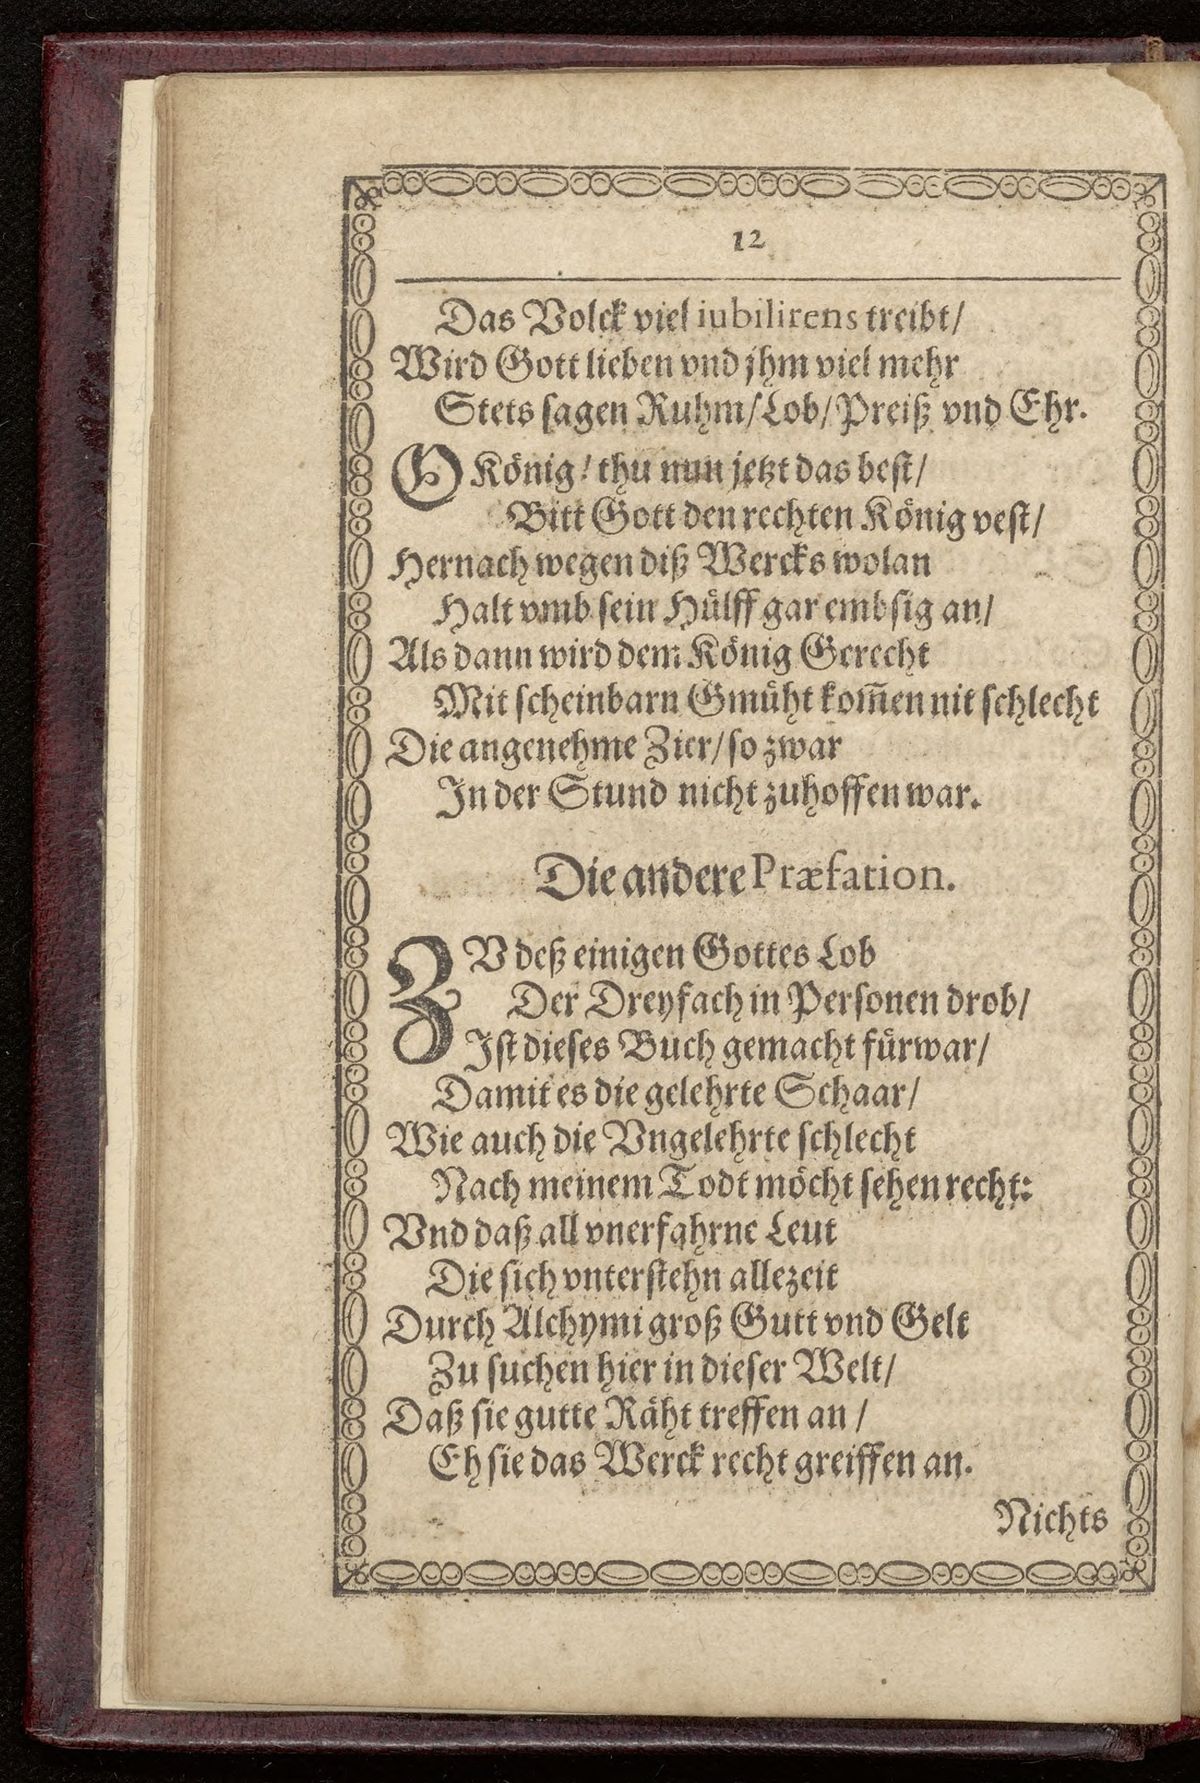 12
Das Volck viel iubilirens treibt/
Wird Gott lieben vnd jhm viel mehr
Stets sagen Ruhm/Lob/Preiß vnd Ehr.
O König! thu nun jetzt das best/
Bitt Gott den rechten König vest/
Hernach wegen diß Wercks wolan
Halt vmb sein Hülff gar embsig an/
Als dann wird dem König Gerecht
Mit scheinbarn Gmüht kom̄en nit schlecht
Die angenehme Zier/so zwar
In der Stund nicht zuhoffen war.
Die andere Præfation.
ZV deß einigen Gottes Lob
Der Dreyfach in Personen drob/
Ist dieses Buch gemacht fürwar/
Damit es die gelehrte Schaar/
Wie auch die Vngelehrte schlecht
Nach meinem Todt möcht sehen recht:
Vnd daß all vnerfahrne Leut
Die sich vnterstehn allezeit
Durch Alchymi groß Gutt vnd Gelt
Zu suchen hier in dieser Welt/
Daß sie gutte Räht treffen an /
Eh sie das Werck recht greiffen an.
Nichts